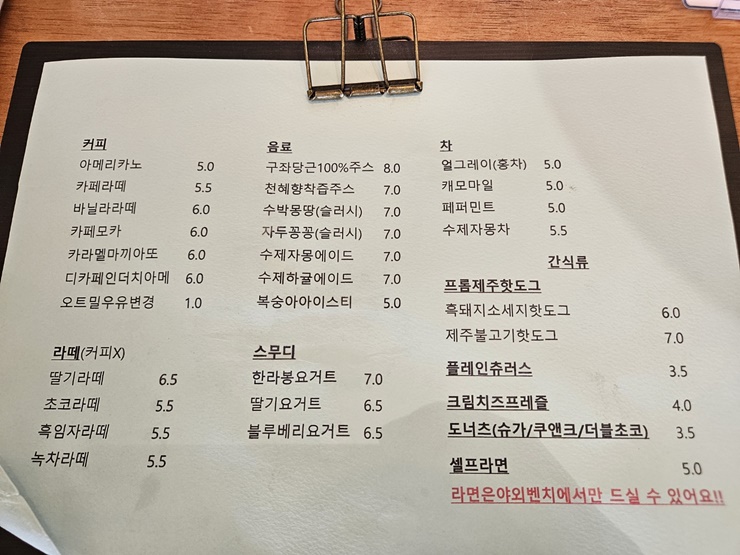 커피
아메리카노 5.0
카페라떼 5.5
바닐라라떼 6.0
카페모카 6.0
카라멜마끼아또 6.0
디카페인더치아메 6.0
오트밀우유변경 1.0
라떼(커피X)
딸기라떼 6.5
초코라떼 5.5
흑임자라떼 5.5
녹차라떼 5.5
음료
구좌당근100%주스 8.0
천혜향착즙주스 7.0
수박몽땅(슬러시) 7.0
자두꽁꽁(슬러시) 7.0
수제자몽에이드 7.0
수제하귤에이드 7.0
복숭아아이스티 5.0
스무디
한라봉요거트 7.0
딸기요거트 6.5
블루베리요거트 6.5
차
얼그레이(홍차) 5.0
캐모마일 5.0
페퍼민트 5.0
수제자몽차 5.5
간식류
프롬제주핫도그
흑돼지소세지핫도그 6.0
제주불고기핫도그 7.0
플레인츄러스 3.5
크림치즈프레즐 4.0
도너츠(슈가/쿠앤크/더블초코) 3.5
셀프라면 5.0
라면은야외벤치에서만 드실 수 있어요!!